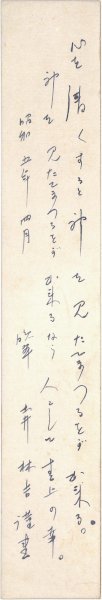 心を清くすると神を見たてまつることが出来る。
神を見たてまつることが出来るなら人として至上の幸。
昭和五年 四月
林吉謹書